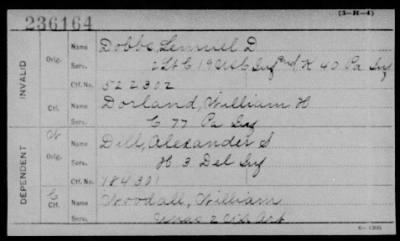 (3-H-4)
236164
INVALID
DEPENDENT
Orig.
Name Dobbs, Lemuel D.
Serv. 2 Lt C 19 U S C Inf and K 40 Pa Inf
Ctf. No. 522302
Ctf.
Name Dorland, William H
Serv. C 77 Pa Inf
W
Orig.
Name Dill, Alexander S.
Serv. H 3 Del Inf
Ctf. No. 184301
C
Ctf.
Name Woodall, William
Serv. 2 Art
6-1305